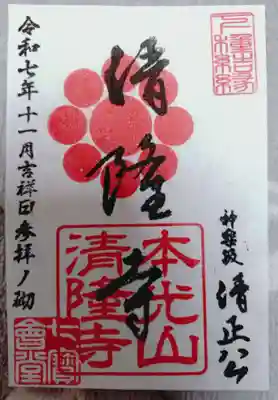 神楽坂 清正公
清隆寺
本光山
清隆寺
令和七年十一月吉祥日参拝ノ砌